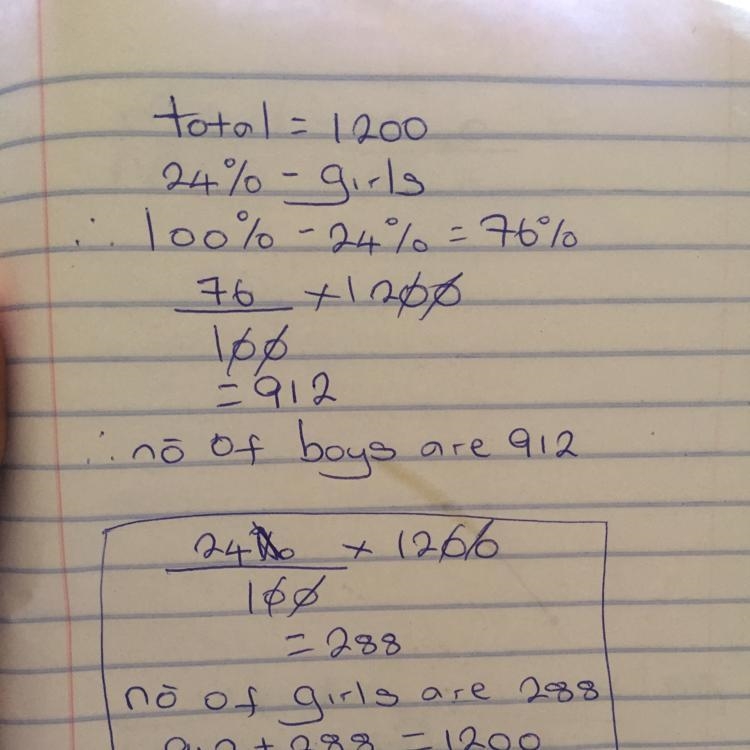 total = 1200
24% - girls
∴ 100% - 24% = 76%
76 × 1200
100
= 912
∴ nō of boys are 912
24 × 1200
100
= 288
nō of girls are 288
912 + 288 = 1200